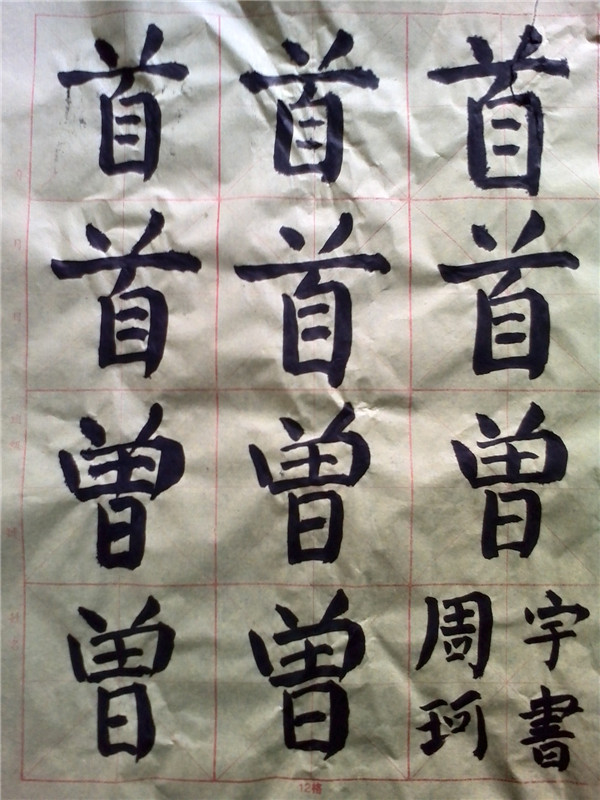 首首首
首首首
曾曾曾
曾曾
周珂
宇書
12格